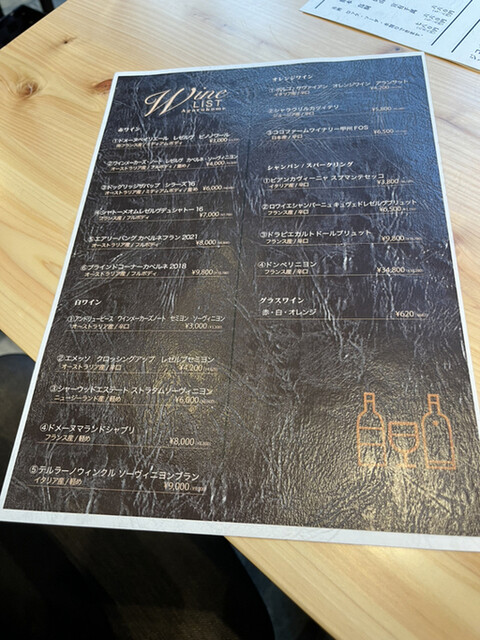 Wine
LIST
赤ワイン
①ドメーヌペイリエール レゼルヴ ピノノワール
南フランス産／ミディアムボディ ¥3,000
②ワインメーカーズ・ノート レゼルヴ カベルネ・ソーヴィニヨン
オーストラリア産／フルボディ／重め ¥4,000
③ドッグリッジザパップ シラーズ 16
オーストラリア産／ミディアムボディ／重め ¥6,000
④シャトーズオムレゼルブデュシャトー 16
フランス産／フルボディ ¥7,000
⑤エアリーバンク カベルネフラン 2021
オーストラリア産／フルボディ ¥8,000
⑥ブラインドコーナーカベルネ 2018
オーストラリア産／フルボディ ¥9,800
白ワイン
①アンドリューピース ワインメーカーズノート セミヨン ソーヴィニヨン
オーストラリア産／辛口 ¥3,000
②エメッツ クロッシングアップ レゼルブセミヨン
オーストラリア産／辛口 ¥4,200
③シャーウッドエステート ストラタムソーヴィニヨン
ニュージーランド産／軽め ¥6,000
④ドメーヌマランドシャブリ
フランス産／軽め ¥8,000
⑤テルラーノウィンクル ソーヴィニヨンブラン
イタリア産／軽め ¥9,000
オレンジワイン
オレンジワイン
イタリア産／辛口
②シャラヴリルカツィテリ
ジョージア産／辛口
③ココファームワイナリー甲州FOS
日本産／辛口 ¥6,500
シャンパン／スパークリング
①ピアソカヴィーニャ スプマンテセッコ
イタリア産／辛口 ¥3,800
②ロワイエシャンパーニュキュヴェドレゼルブブリュット
フランス産／辛口 ¥6,500
③ドラピエカルトドールブリュット
フランス産／辛口 ¥9,800
④ドンペリニヨン
フランス産／辛口 ¥34,800
グラスワイン
赤・白・オレンジ ¥620